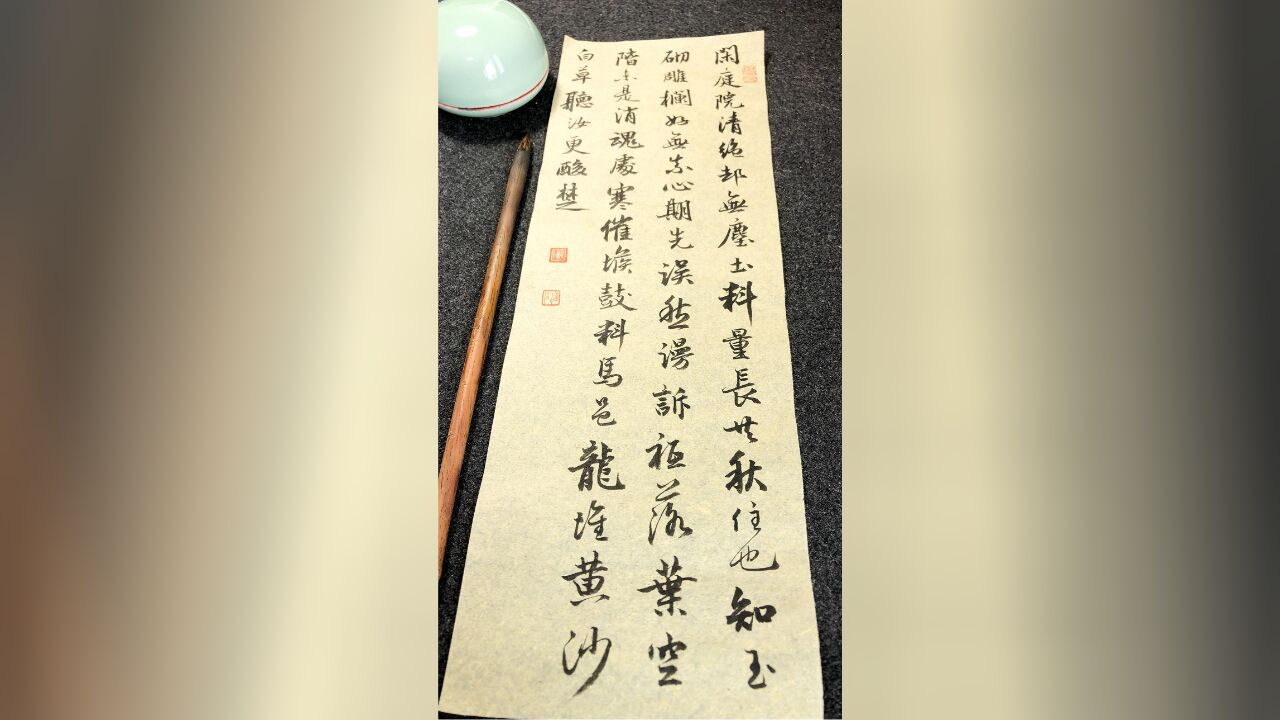 閑庭院清絶却無塵土料量長共秋住也知玉
砌雕欄好無奈心期先誤愁謾訴祗落葉空
階是消魂處寒催堠鼓料馬邑龍堆黄沙
白草聽汝更酸楚